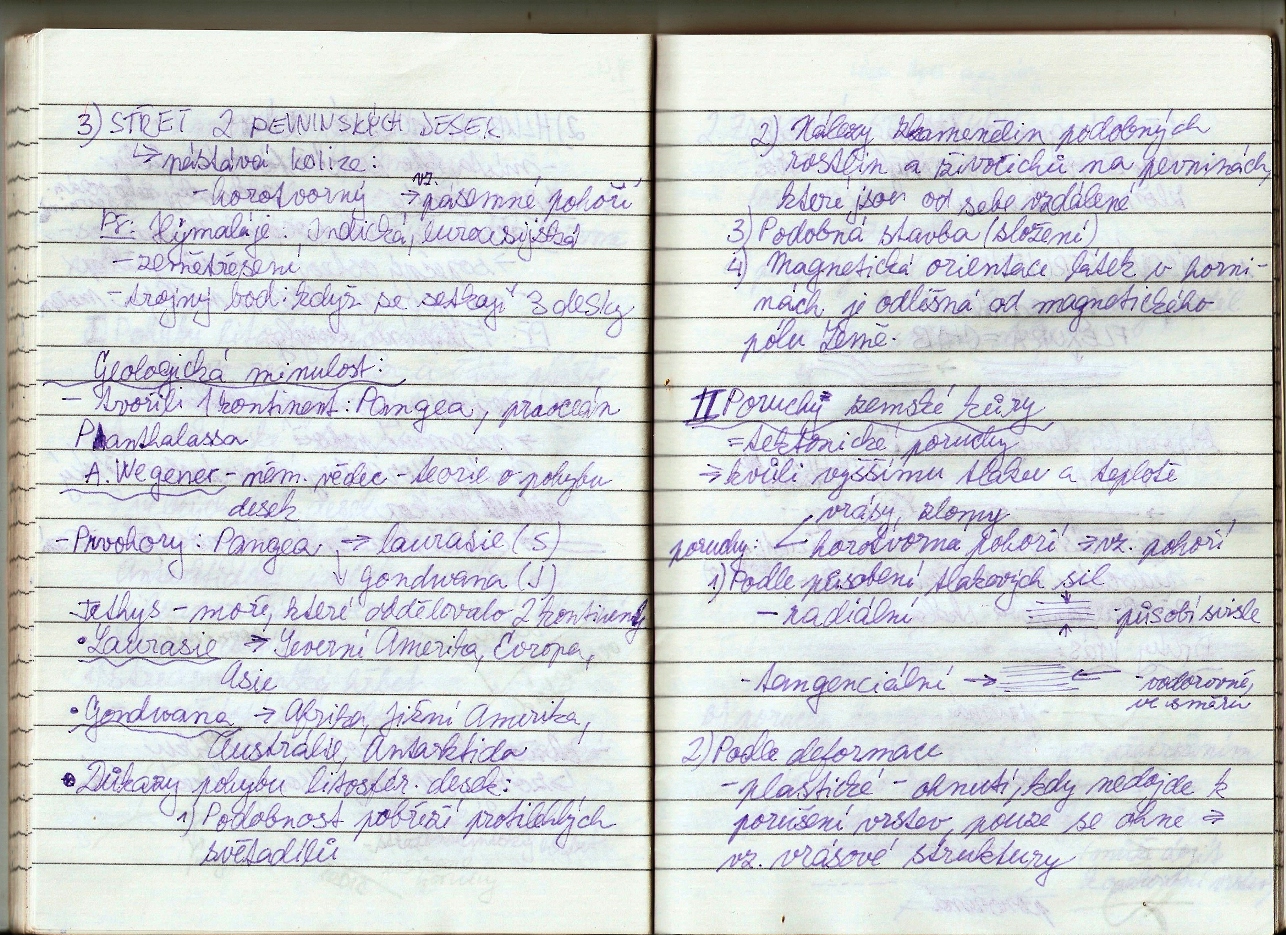 3) STŘET 2 PEVNINSKÝCH DESEK
↳ nastává kolize:
- horotvorný → vz. pásemné pohoří
Př: Hýmaláje: Indická, euroasijská
- zemětřesení
- trojný bod: když se setkají 3 desky
Geologická minulost:
- tvořili 1 kontinent: Pangea, praoceán
Panthalassa
A. Wegener - něm. vědec - teorie o pohybu
desek
- Prvohory: Pangea → laurasie (S)
↓ gondwana (J)
Tethys - moře, které oddělovalo 2 kontinenty
• Laurasie → Severní Amerika, Evropa,
Asie
• Gondwana → Afrika, Jižní Amerika,
Austrálie, Antarktida
• Důkazy pohybu litosfér. desek:
1) Podobnost pobřeží protilehlých
světadílů
2) Nálezy zkamenělin podobných
rostlin a živočichů na pevninách,
které jsou od sebe vzdálené
3) Podobná stavba (složení)
4) Magnetická orientace látek v horni-
nách je odlišná od magnetického
pólu Země.
II Poruchy zemské kůry
= tektonické poruchy
→ kvůli vyššímu tlaku a teplotě
vrásy, zlomy
poruchy: horotvorna pohoří → vz. pohoří
1) Podle působení tlakových sil
- radiální - působí svisle
- tangenciální → ← - vodorovné,
ve směru
2) Podle deformace
- plastické - ohnutí, kdy nedojde k
porušení vrstev, pouze se ohne ⇒
vz. vrásové struktury